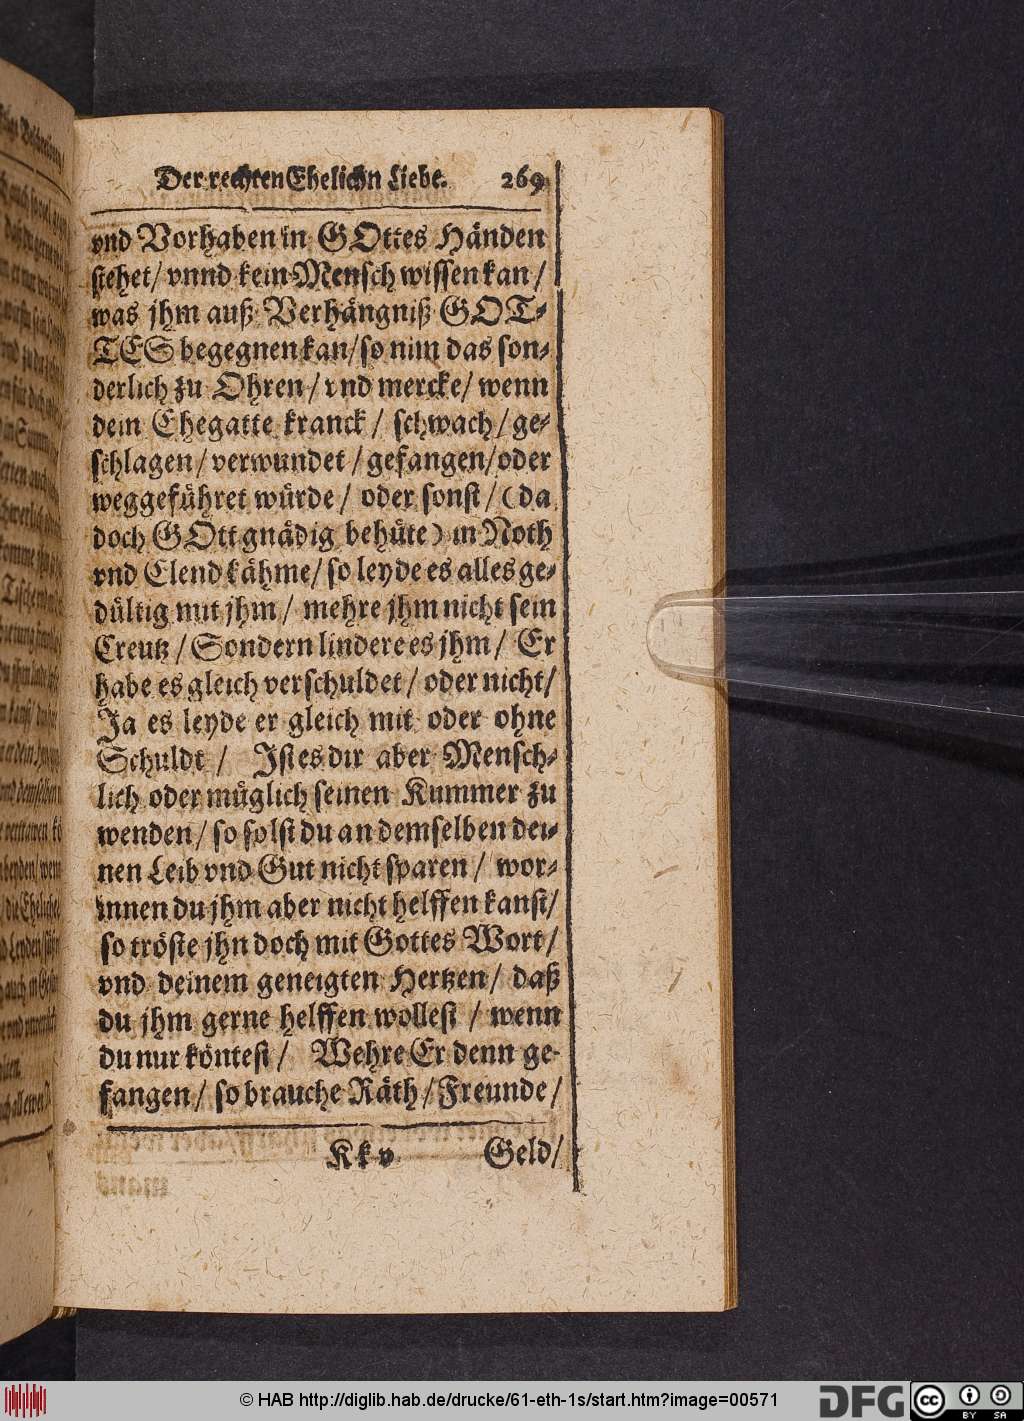 Der rechten Ehelichn Liebe. 269
vnd Vorhaben in GOttes Händen
stehet/ vnnd kein Mensch wissen kan/
was jhm auß Verhängniß GOT-
TES begegnen kan/ so nim das son-
derlich zu Ohren/ vnd mercke/ wenn
dein Ehegatte kranck/ schwach/ ge-
schlagen/ verwundet/ gefangen/ oder
weggeführet würde/ oder sonst/ (da
doch GOtt gnädig behüte) in Noth
vnd Elend kähme/ so leyde es alles ge-
dültig mit jhm/ mehre jhm nicht sein
Creutz/ Sondern lindere es jhm/ Er
habe es gleich verschuldet/ oder nicht/
Ja es leyde er gleich mit oder ohne
Schuldt/ Ist es dir aber Mensch-
lich oder müglich seinen Kummer zu
wenden/ so solst du an demselben dei-
nen Leib vnd Gut nicht sparen/ wor-
innen du jhm aber nicht helffen kanst/
so tröste jhn doch mit Gottes Wort/
vnd deinem geneigten Hertzen/ daß
du jhm gerne helffen wollest/ wenn
du nur köntest/ Wehre Er denn ge-
fangen/ so brauche Räth/ Freunde/
Kk v Geld/
© HAB http://diglib.hab.de/drucke/61-eth-1s/start.htm?image=00571
DFG cc BY SA